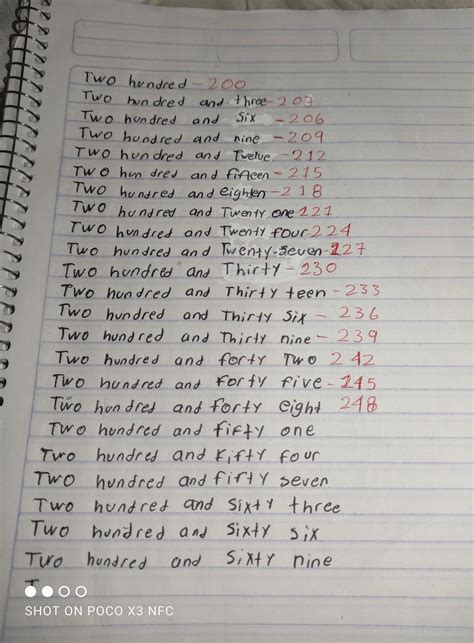 Two hundred - 200
Two hundred and three - 203
Two hundred and Six - 206
Two hundred and nine - 209
Two hundred and Twelve - 212
Two hundred and fifteen - 215
Two hundred and eighten - 218
Two hundred and Twenty one - 221
Two hundred and Twenty four - 224
Two hundred and Twenty-seven - 227
Two hundred and Thirty - 230
Two hundred and Thirty teen - 233
Two hundred and Thirty Six - 236
Two hundred and Thirty nine - 239
Two hundred and forty Two 242
Two hundred and forty five - 245
Two hundred and forty eight 248
Two hundred and fifty one
Two hundred and fifty four
Two hundred and fifty seven
Two hundred and Sixty three
Two hundred and Sixty six
Two hundred and Sixty nine
SHOT ON POCO X3 NFC